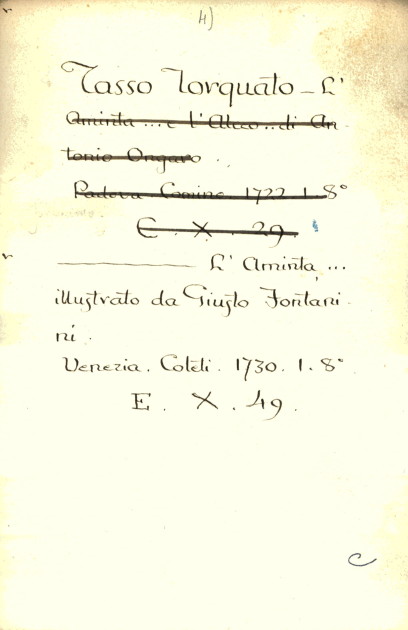 4)
Tasso Torquato - L'
Aminta ... e l'Alceo .. di An
tonio Ongaro ..
Padova Comino 1722 1. 8°
E. X. 29.
L' Aminta ...
illustrato da Giusto Fontani-
ni.
Venezia. Coleti. 1730. 1. 8°
E. X. 49.
C